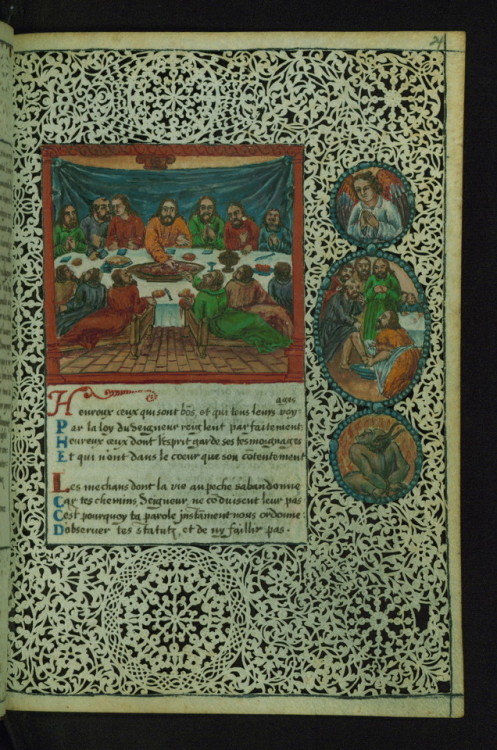 21
Heureux ceux qui sont bõs, et qui tous leurs voy-
ages
Par la loy du Seigneur reiglent parfaitement:
Heureux ceux dont l'esprit garde ses tesmoignages
Et qui n'ont dans le coeur que son cõtentement
Les mechans dont la vie au peche sabandonne
Car tes chemins, Seigneur, ne cõduisent leur pas
Cest pourquoy ta parole justament nous ordonne:
Dobserver tes statutz, et de ny faillir pas.